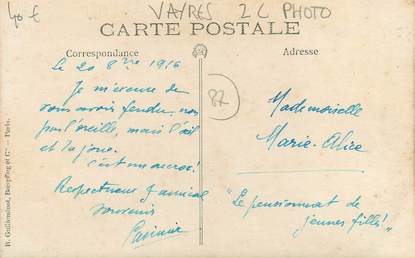 40 €
VAYRES 2C PHOTO
CARTE POSTALE
Correspondance
Adresse
Le 20 8bre 1916
Je m'excuse de
vous avoir fendu, non
pas l'oreille, mais l'œil
et la joue.
C'est un accroc!
Respectueux & amical
souvenir
87
Mademoiselle
Marie-Alice
"Le pensionnat de
jeunes filles!"
R. Guilleminot, Bœspflug et Cie – Paris.